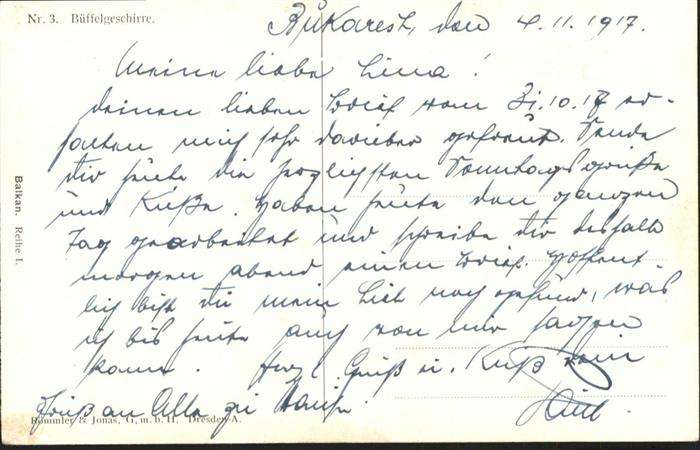 Nr. 3. Büffelgeschirre.
Bukarest, den 4.11.1917.
Meine liebe Lina!
deinen lieben Brief vom 31.10.17 er-
halten mich sehr darüber gefreut. Sende
dir heute die herzlichsten Sonntagsgrüße
und Küße. Haben heute den ganzen
Tag gearbeitet und schreibe dir deshalb
morgen abend einen Brief. Hoffent
lich bist du mein Lieb noch gesund, was
ich bis heute auch von mir sagen
kann. Herzl. Gruß u. Kuß dein
Gruß an Alle zu Hause.
Balkan. Reihe I.
Römmler & Jonas, G. m. b. H. Dresden-A.